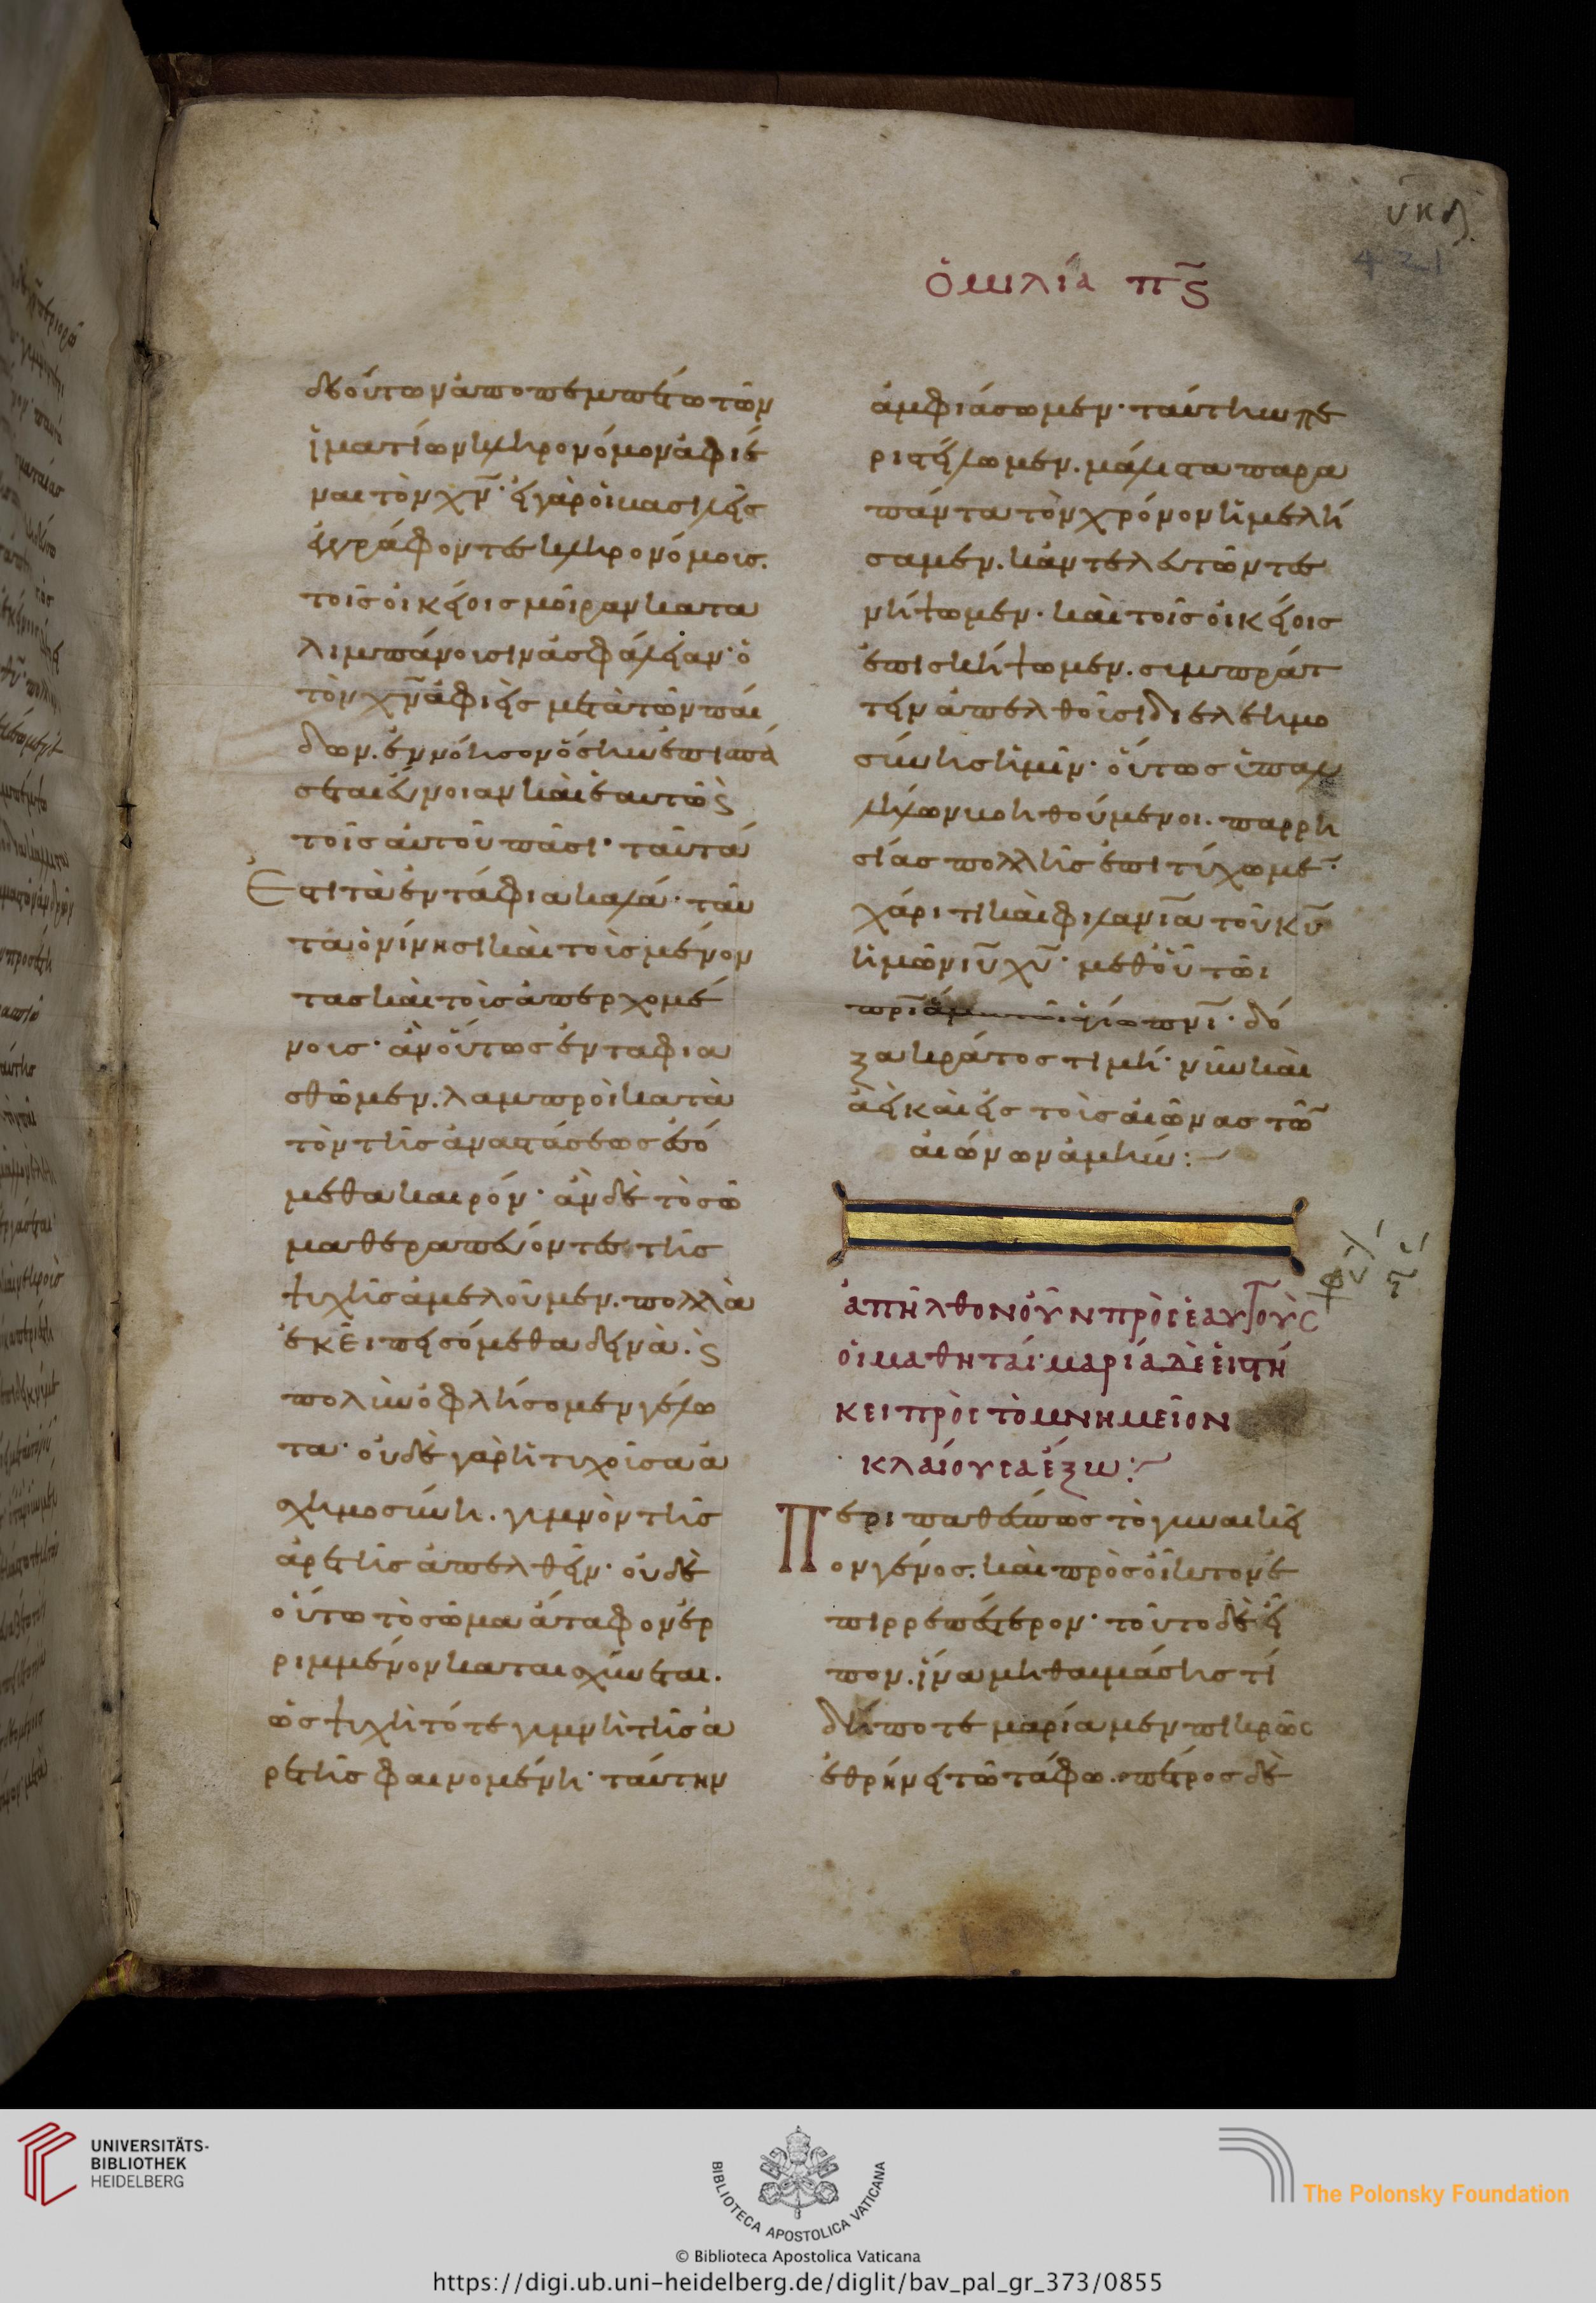 υκδ
421
ὁμιλία π̅ς
δεόντων ἀποπεμπέτω τῶν
ἱματίων κληρονόμον ἀφιέ
ναι τὸν χ̅ν̅· εἰ γὰρ οἱ βασιλεῖς
ἐγγράφοντες κληρονόμοις.
τοῖς οἰκείοις μοῖραν κατα
λιμπάνουσιν ἀσφάλειαν· ὁ
τὸν χ̅ν̅ ἀφιεὶς μετὰ τῶν παί
δων. ἐννόησον ὅσην ἐπισπά
σεται εὔνοιαν καὶ ἑαυτῶ ϛ
τοῖς αὐτοῦ πᾶσι· ταῦτά
ἐστι τὰ ἐντάφια καλά· ταῦ
τα ὀνίνησι καὶ τοὺς μένον
τας καὶ τοὺς ἀπερχομέ
νους· ἂν οὕτως ἐνταφια
σθῶμεν. λαμπροὶ κατὰ
τὸν τῆς ἀναστάσεως ἐσό
μεθα καιρόν· ἂν δὲ τὸ σῶ
μα θεραπεύοντες τῆς
ψυχῆς ἀμελοῦμεν. πολλὰ
ἐκεῖ πεισόμεθα δεινὰ. ϛ
πολὺν ὀφλήσομεν γέλω
τα· οὐδὲ γὰρ ἡ τυχοῦσα ἀ
σχημοσύνη. γυμνὸν τῆς
ἀρετῆς ἀπελθεῖν· οὐδὲ
οὕτω τὸ σῶμα ἄταφον ἐρ
ριμμένον καταισχύνεται.
ὡς ψυχὴ τότε γυμνὴ τῆς ἀ
ρετῆς φαινομένη· ταύτην
ἀμφιάσωμεν· ταύτην πε
ριστείλωμεν. μάλιστα παρὰ
πάντα τὸν χρόνον ἠμελή
σαμεν. κἂν τελευτῶντες
νήψωμεν· καὶ τοῖς οἰκείοις
ἐπισκήψωμεν. συμπράτ
τειν ἀπελθοῦσι δι' ἐλεημο
σύνης ἡμῖν· οὕτως ὑπ' ἀλ
λήλων βοηθούμενοι. παρρη
σίας πολλῆς ἐπιτύχωμε̅·
χάριτι καὶ φιλανι̅α τοῦ κ̅υ̅
ἡμῶν ι̅υ̅ χ̅υ̅· μεθ' οὗ τῶι
πρ̅ι ἅμα τῶι ἁγίω πν̅ι· δό
ξα κράτος τιμή· νῦν καὶ
ἀεὶ καὶ εἰς τοὺς αἰῶνας τῶ̅
αἰώνων ἀμήν:
ἀπῆλθον οὖν πρὸς ἑαυτοὺς
οἱ μαθηταί· μαρία δὲ εἱστή
κει πρὸς τὸ μνημεῖον
κλαίουσα ἔξω:
Περιπαθές πως τὸ γυναικεῖ
ον γένος. καὶ πρὸς οἶκτον ἐ
πιρρεπέστερον· τοῦτο δὲ εἶ
πον. ἵνα μὴ θαυμάσης τί
δήποτε μαρία μὲν πικρῶς
ἐθρήνει τῶ τάφω. πέτρος δὲ
UNIVERSITÄTS-
BIBLIOTHEK
HEIDELBERG
BIBLIOTECA APOSTOLICA VATICANA
The Polonsky Foundation
© Biblioteca Apostolica Vaticana
https://digi.ub.uni-heidelberg.de/diglit/bav_pal_gr_373/0855